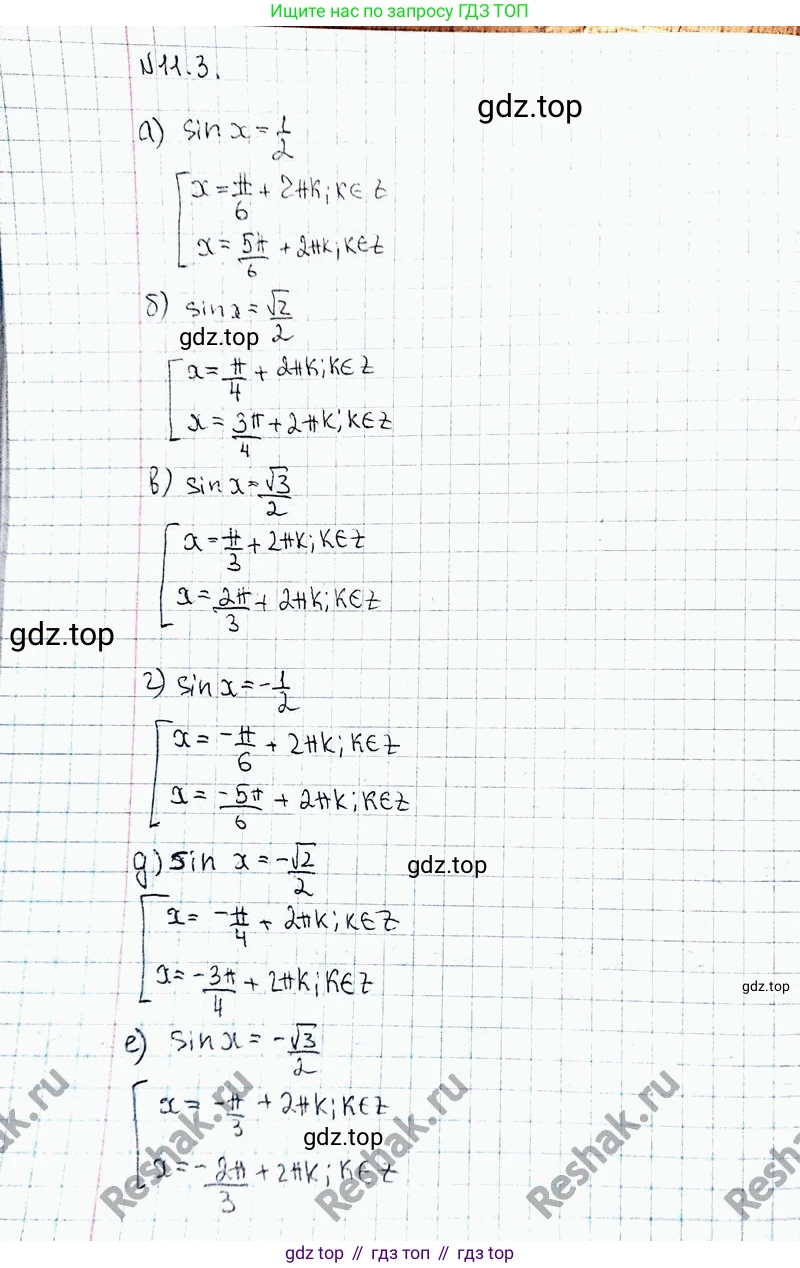 Ищите нас по запросу ГДЗ ТОП
N11.3.
gdz.top
а) sin x = 1/2
x = π/6 + 2πk; k∈Z
x = 5π/6 + 2πk; k∈Z
б) sin x = √2/2
gdz.top
x = π/4 + 2πk; k∈Z
x = 3π/4 + 2πk; k∈Z
в) sin x = √3/2
x = π/3 + 2πk; k∈Z
x = 2π/3 + 2πk; k∈Z
gdz.top
г) sin x = -1/2
x = -π/6 + 2πk; k∈Z
x = -5π/6 + 2πk; k∈Z
д) sin x = -√2/2
gdz.top
x = -π/4 + 2πk; k∈Z
x = -3π/4 + 2πk; k∈Z
gdz.top
е) sin x = -√3/2
x = -π/3 + 2πk; k∈Z
gdz.top
x = -2π/3 + 2πk; k∈Z
ak.ru
Reshak.ru
Reshak.ru
Reshak.ru
Resha
gdz top // гдз топ // gdz top